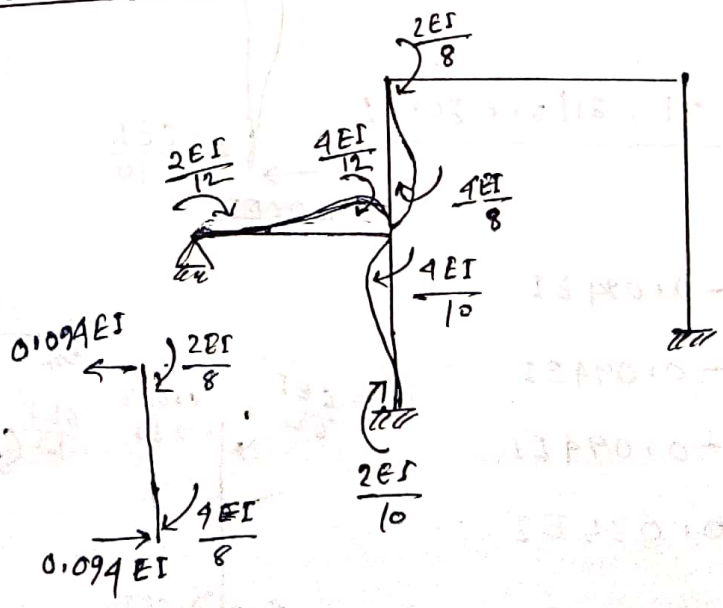 2EI
8
2EI
12
4EI
12
4EI
8
4EI
10
2EI
10
0.094EI
2EI
8
4EI
8
0.094 EI